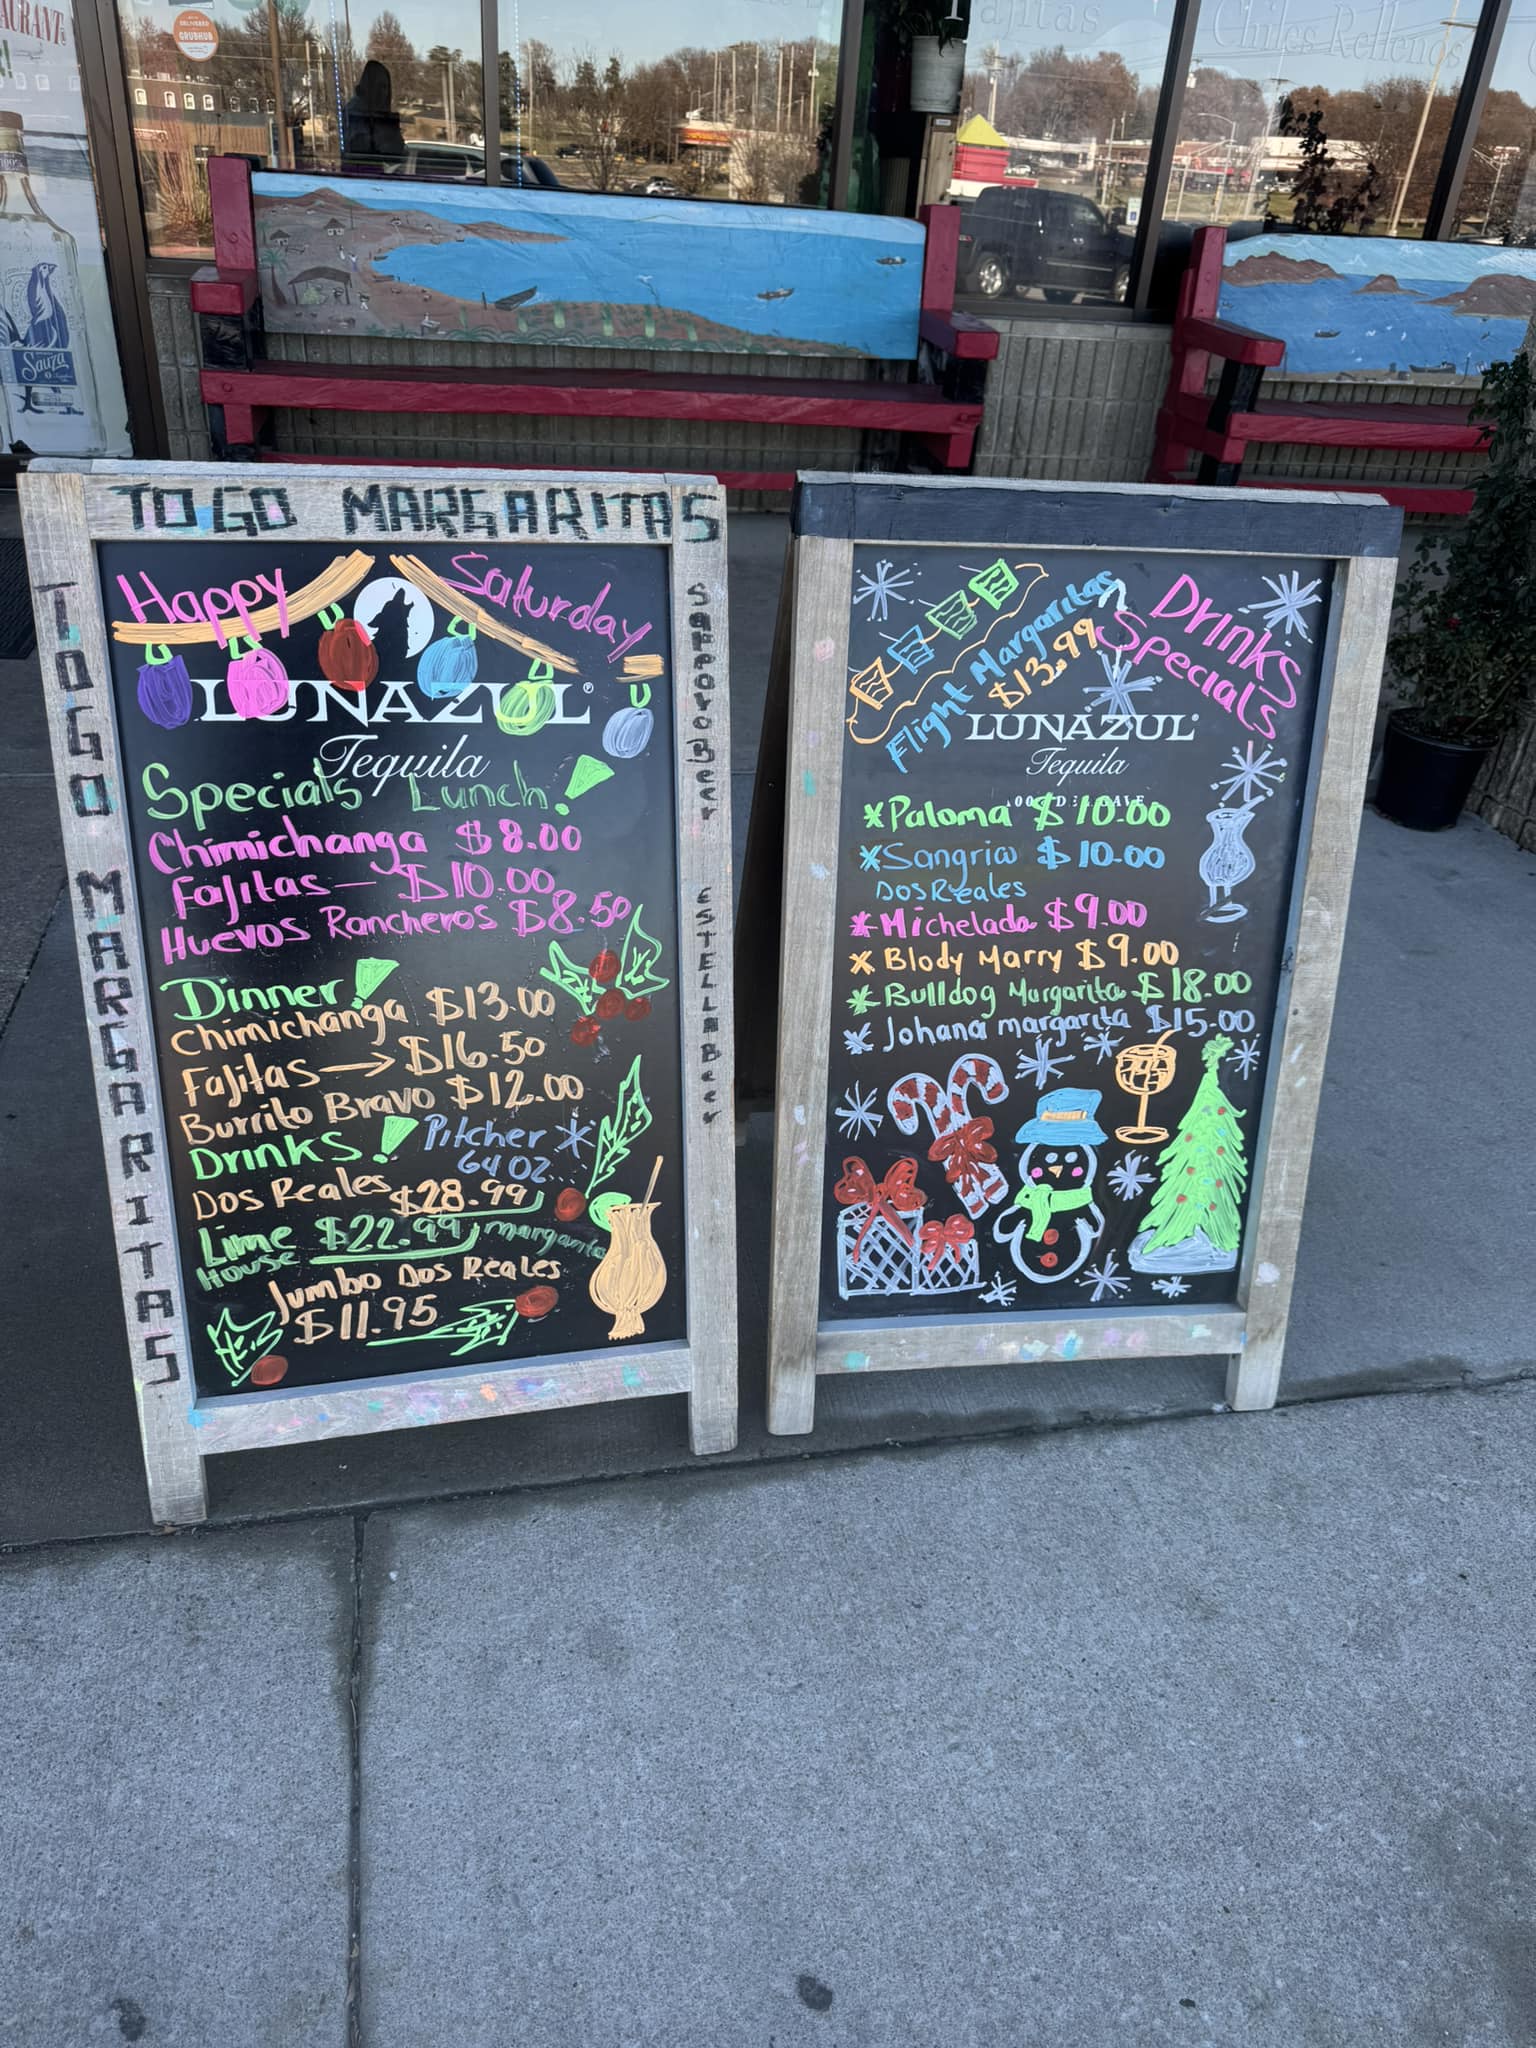 AURANT
DELIVERED
GRUBHUB
Fajitas
Chiles Rellenos
100%
Sauza
TO GO MARGARITAS
TO GO MARGARITAS
Happy Saturday
LUNAZUL®
Tequila
Specials Lunch!
Chimichanga $8.00
Fajitas — $10.00
Huevos Rancheros $8.50
Dinner!
Chimichanga $13.00
Fajitas → $16.50
Burrito Bravo $12.00
Drinks! Pitcher
64 OZ..
Dos Reales $28.99
Lime $22.99 margarita
House
Jumbo Dos Reales
$11.95
Sapporo Beer ESTELLA Beer
Drinks
Specials
Flight Margaritas
$13.99
LUNAZUL®
Tequila
* Paloma $10.00
* Sangria $10.00
Dos Reales
* Michelada $9.00
* Blody Marry $9.00
* Bulldog Margarita $18.00
* Johana margarita $15.00